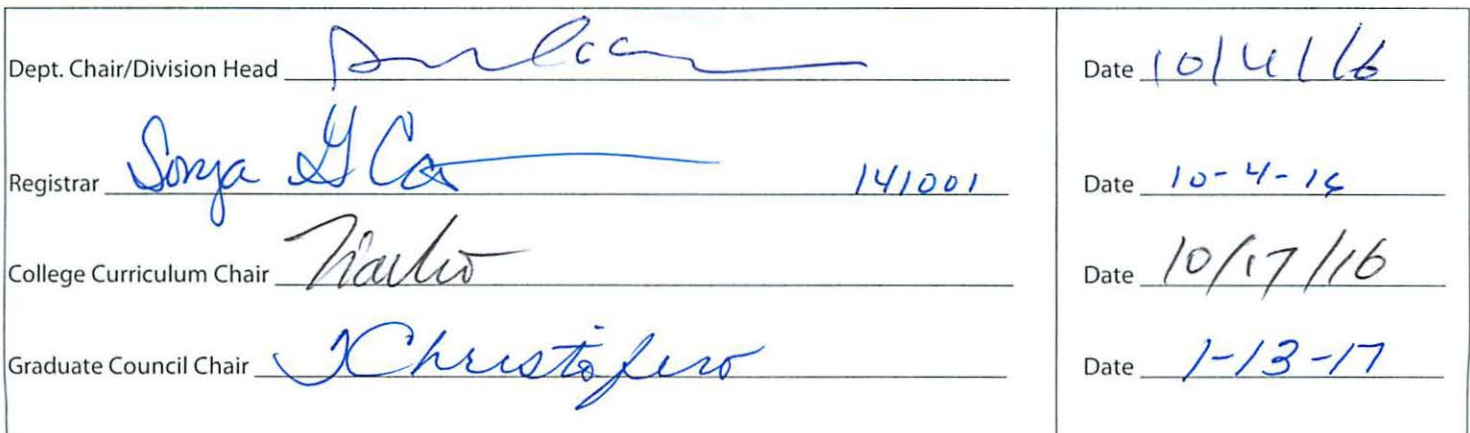 Dept. Chair/Division Head Date 10/4/16
Registrar Sonya G 141001 Date 10-4-16
College Curriculum Chair Date 10/17/16
Graduate Council Chair TChristofero Date 1-13-17